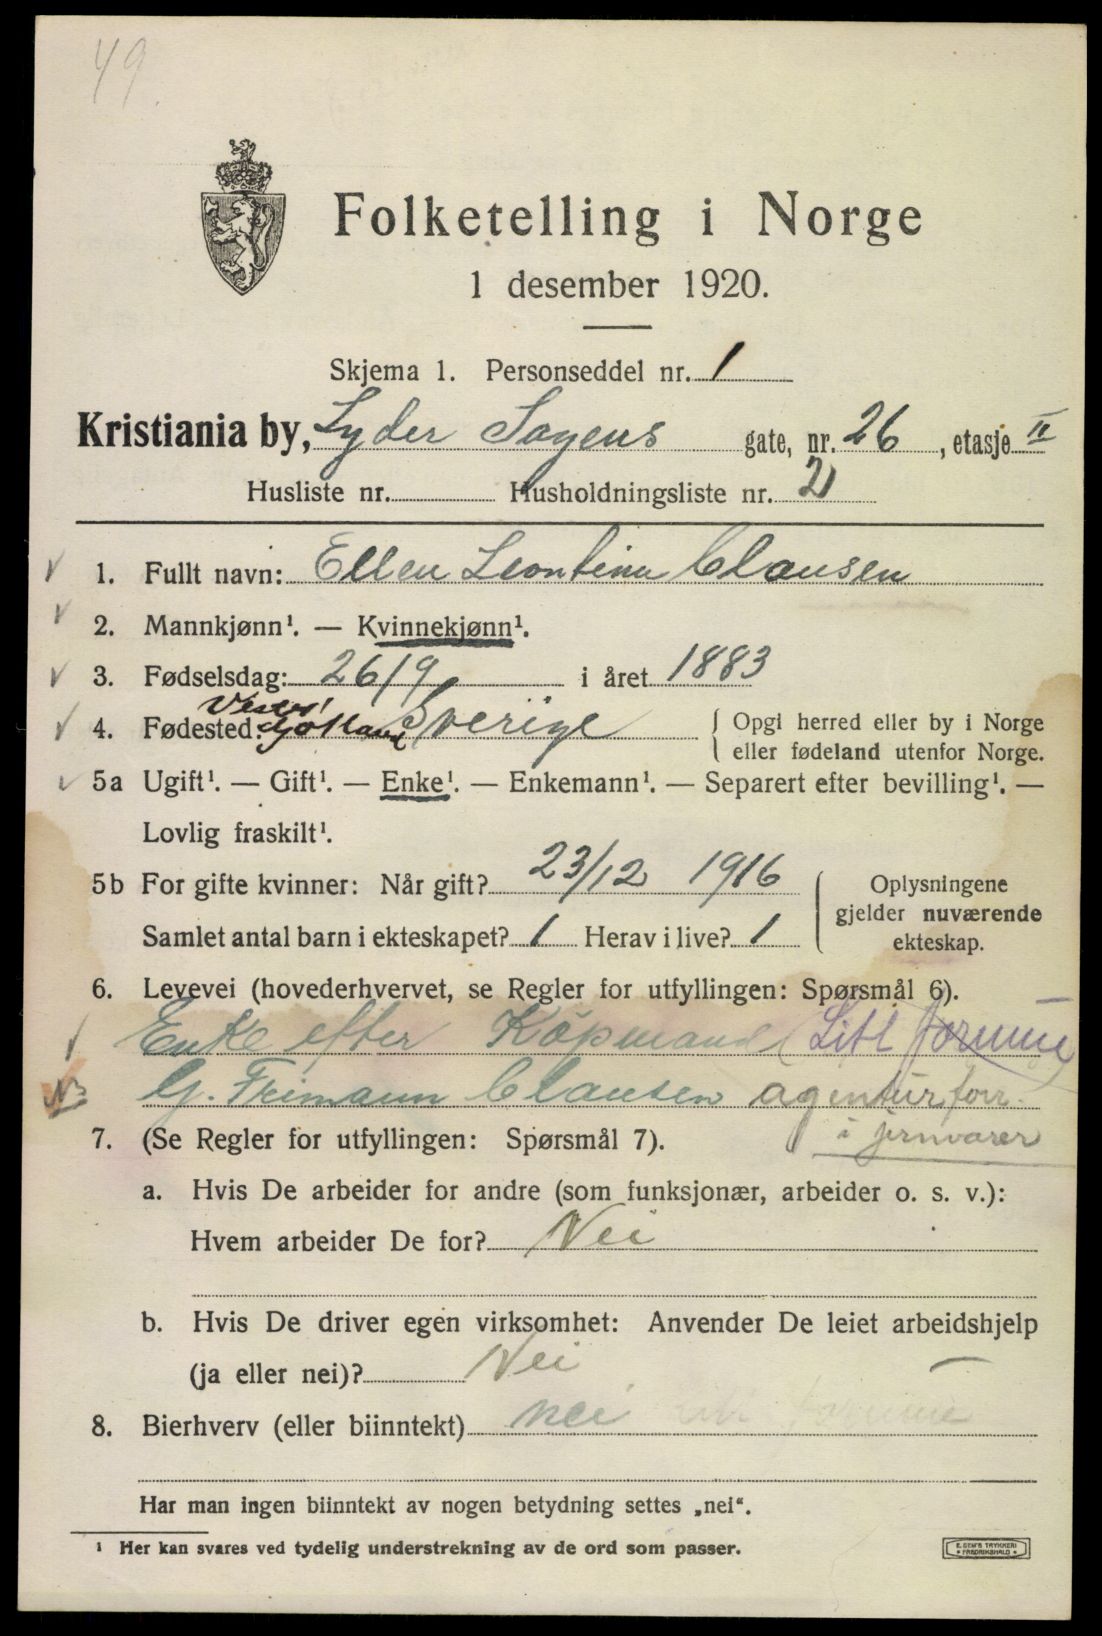 49.
Folketelling i Norge
1 desember 1920.
Skjema 1. Personseddel nr. 1
Kristiania by, Lyder Sagens gate, nr. 26, etasje II
Husliste nr. Husholdningsliste nr. 2
1. Fullt navn: Ellen Leontine Clausen
2. Mannkjønn¹. — Kvinnekjønn¹.
3. Fødselsdag: 26/9 i året 1883
4. Fødested: Vester Götland Sverige { Opgi herred eller by i Norge
eller fødeland utenfor Norge.
5a Ugift¹. — Gift¹. — Enke¹. — Enkemann¹. — Separert efter bevilling¹. —
Lovlig fraskilt¹.
5b For gifte kvinner: Når gift? 23/12 1916
Samlet antal barn i ekteskapet? 1 Herav i live? 1
{ Oplysningene
gjelder nuværende
ekteskap.
6. Levevei (hovederhvervet, se Regler for utfyllingen: Spørsmål 6).
Enke efter Köpmand (Litt formue
G. Freimann Clausen agenturforr.
i jernvarer
7. (Se Regler for utfyllingen: Spørsmål 7).
a. Hvis De arbeider for andre (som funksjonær, arbeider o. s. v.):
Hvem arbeider De for? Nei
b. Hvis De driver egen virksomhet: Anvender De leiet arbeidshjelp
(ja eller nei)? Nei —
8. Bierhverv (eller biinntekt) nei litt formue
Har man ingen biinntekt av nogen betydning settes „nei“.
¹ Her kan svares ved tydelig understrekning av de ord som passer.
E. SEM'S TRYKKERI
FREDRIKSHALD